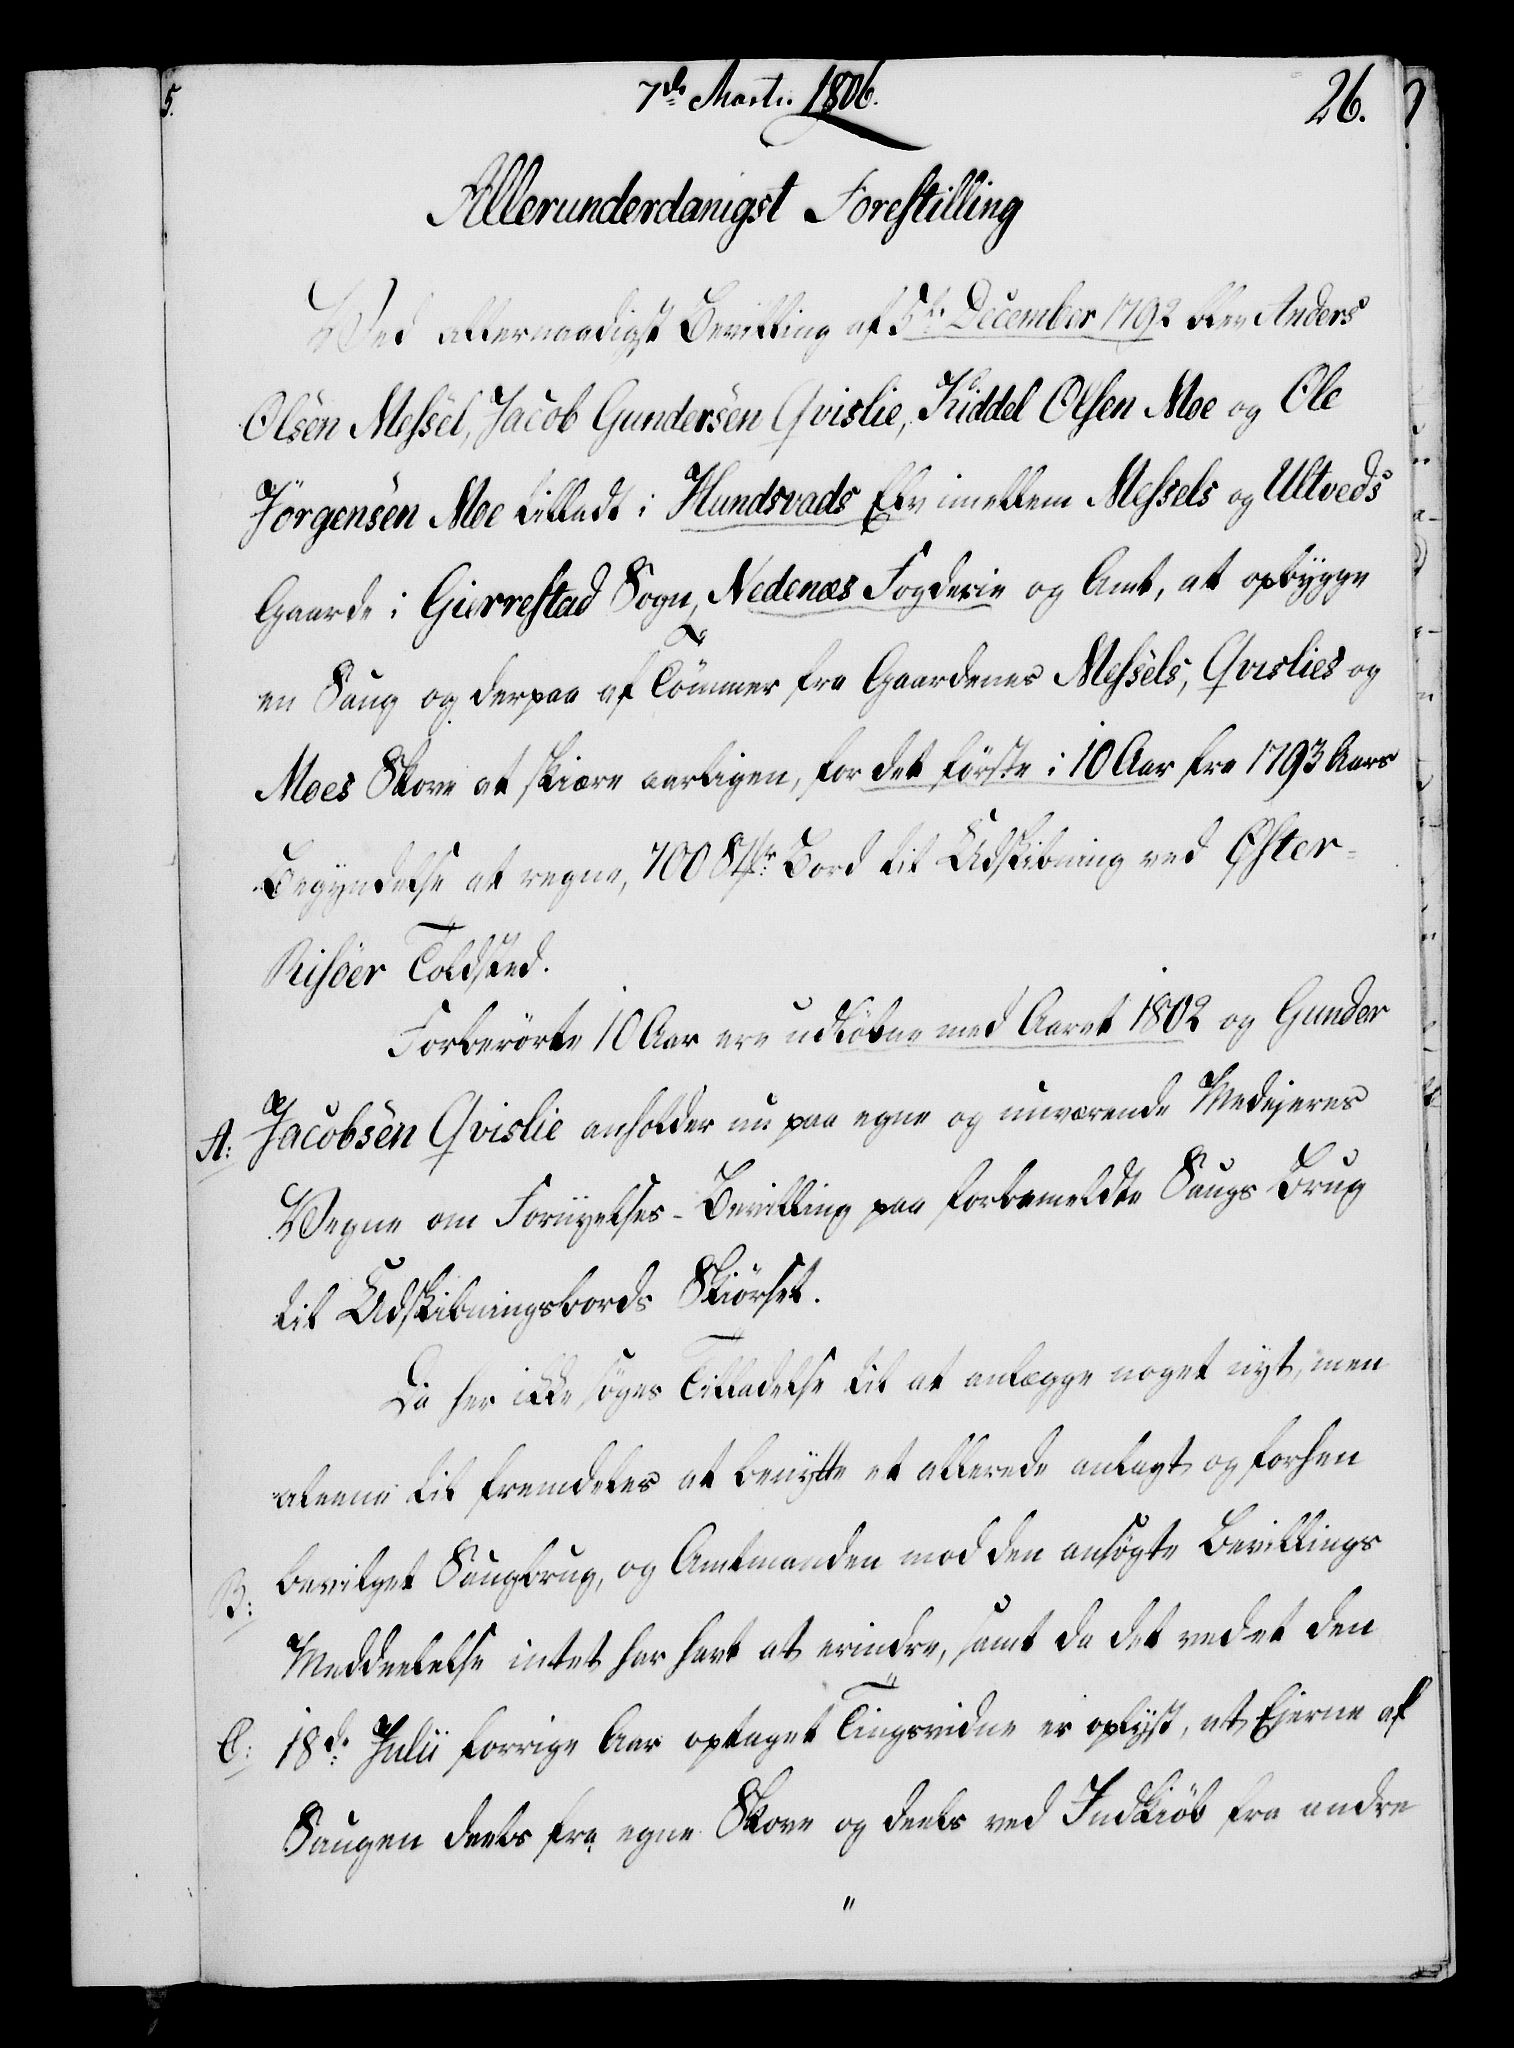 5.
7de Marti. 1806.
26.
Allerunderdanigst Forestilling
Ved allernaadigst Bevilling af 5te December 1792 blev Anders
Olsen Messel, Jacob Gundersen Qvislie, Kiddel Olsen Moe og Ole
Jørgensen Moe tilladt i Hundsvads Elv imellem Messels og Ultveds
Gaarde i Gierrestad Sogn, Nedenæs Fogderie og Amt, at opbygge
en Saug og derpaa af Tømmer fra Gaardenes Messels, Qvislies og
Moes Skove at skiære aarligen, for det første i 10 Aar fra 1793 Aars
Begyndelse at regne, 700 St. Bord til Udskibning ved Øster-
Risøer Toldsted.
Forberørte 10 Aar ere udløbne med Aaret 1802 og Gunder
A: Jacobsen Qvislie anholder nu paa egne og nuværende Medejeres
Vegne om Fornyelses-Bevilling paa forbemeldte Saugs Brug
til Udskibningsbords Skiørsel.
Da her ikke søges Tilladelse til at anlægge noget nyt, men
aleene til fremdeles at benytte et allerede anlagt og forhen
B: bevilget Saugbrug, og Amtmanden mod den ansøgte Bevillings
Meddeelelse intet har havt at erindre, samt da det ved et den
C: 18de Julii forrige Aar optaget Tingsvidne er oplyst, at Ejerne af
Saugen deels fra egne Skove og deels ved Indkiøb fra andre
"